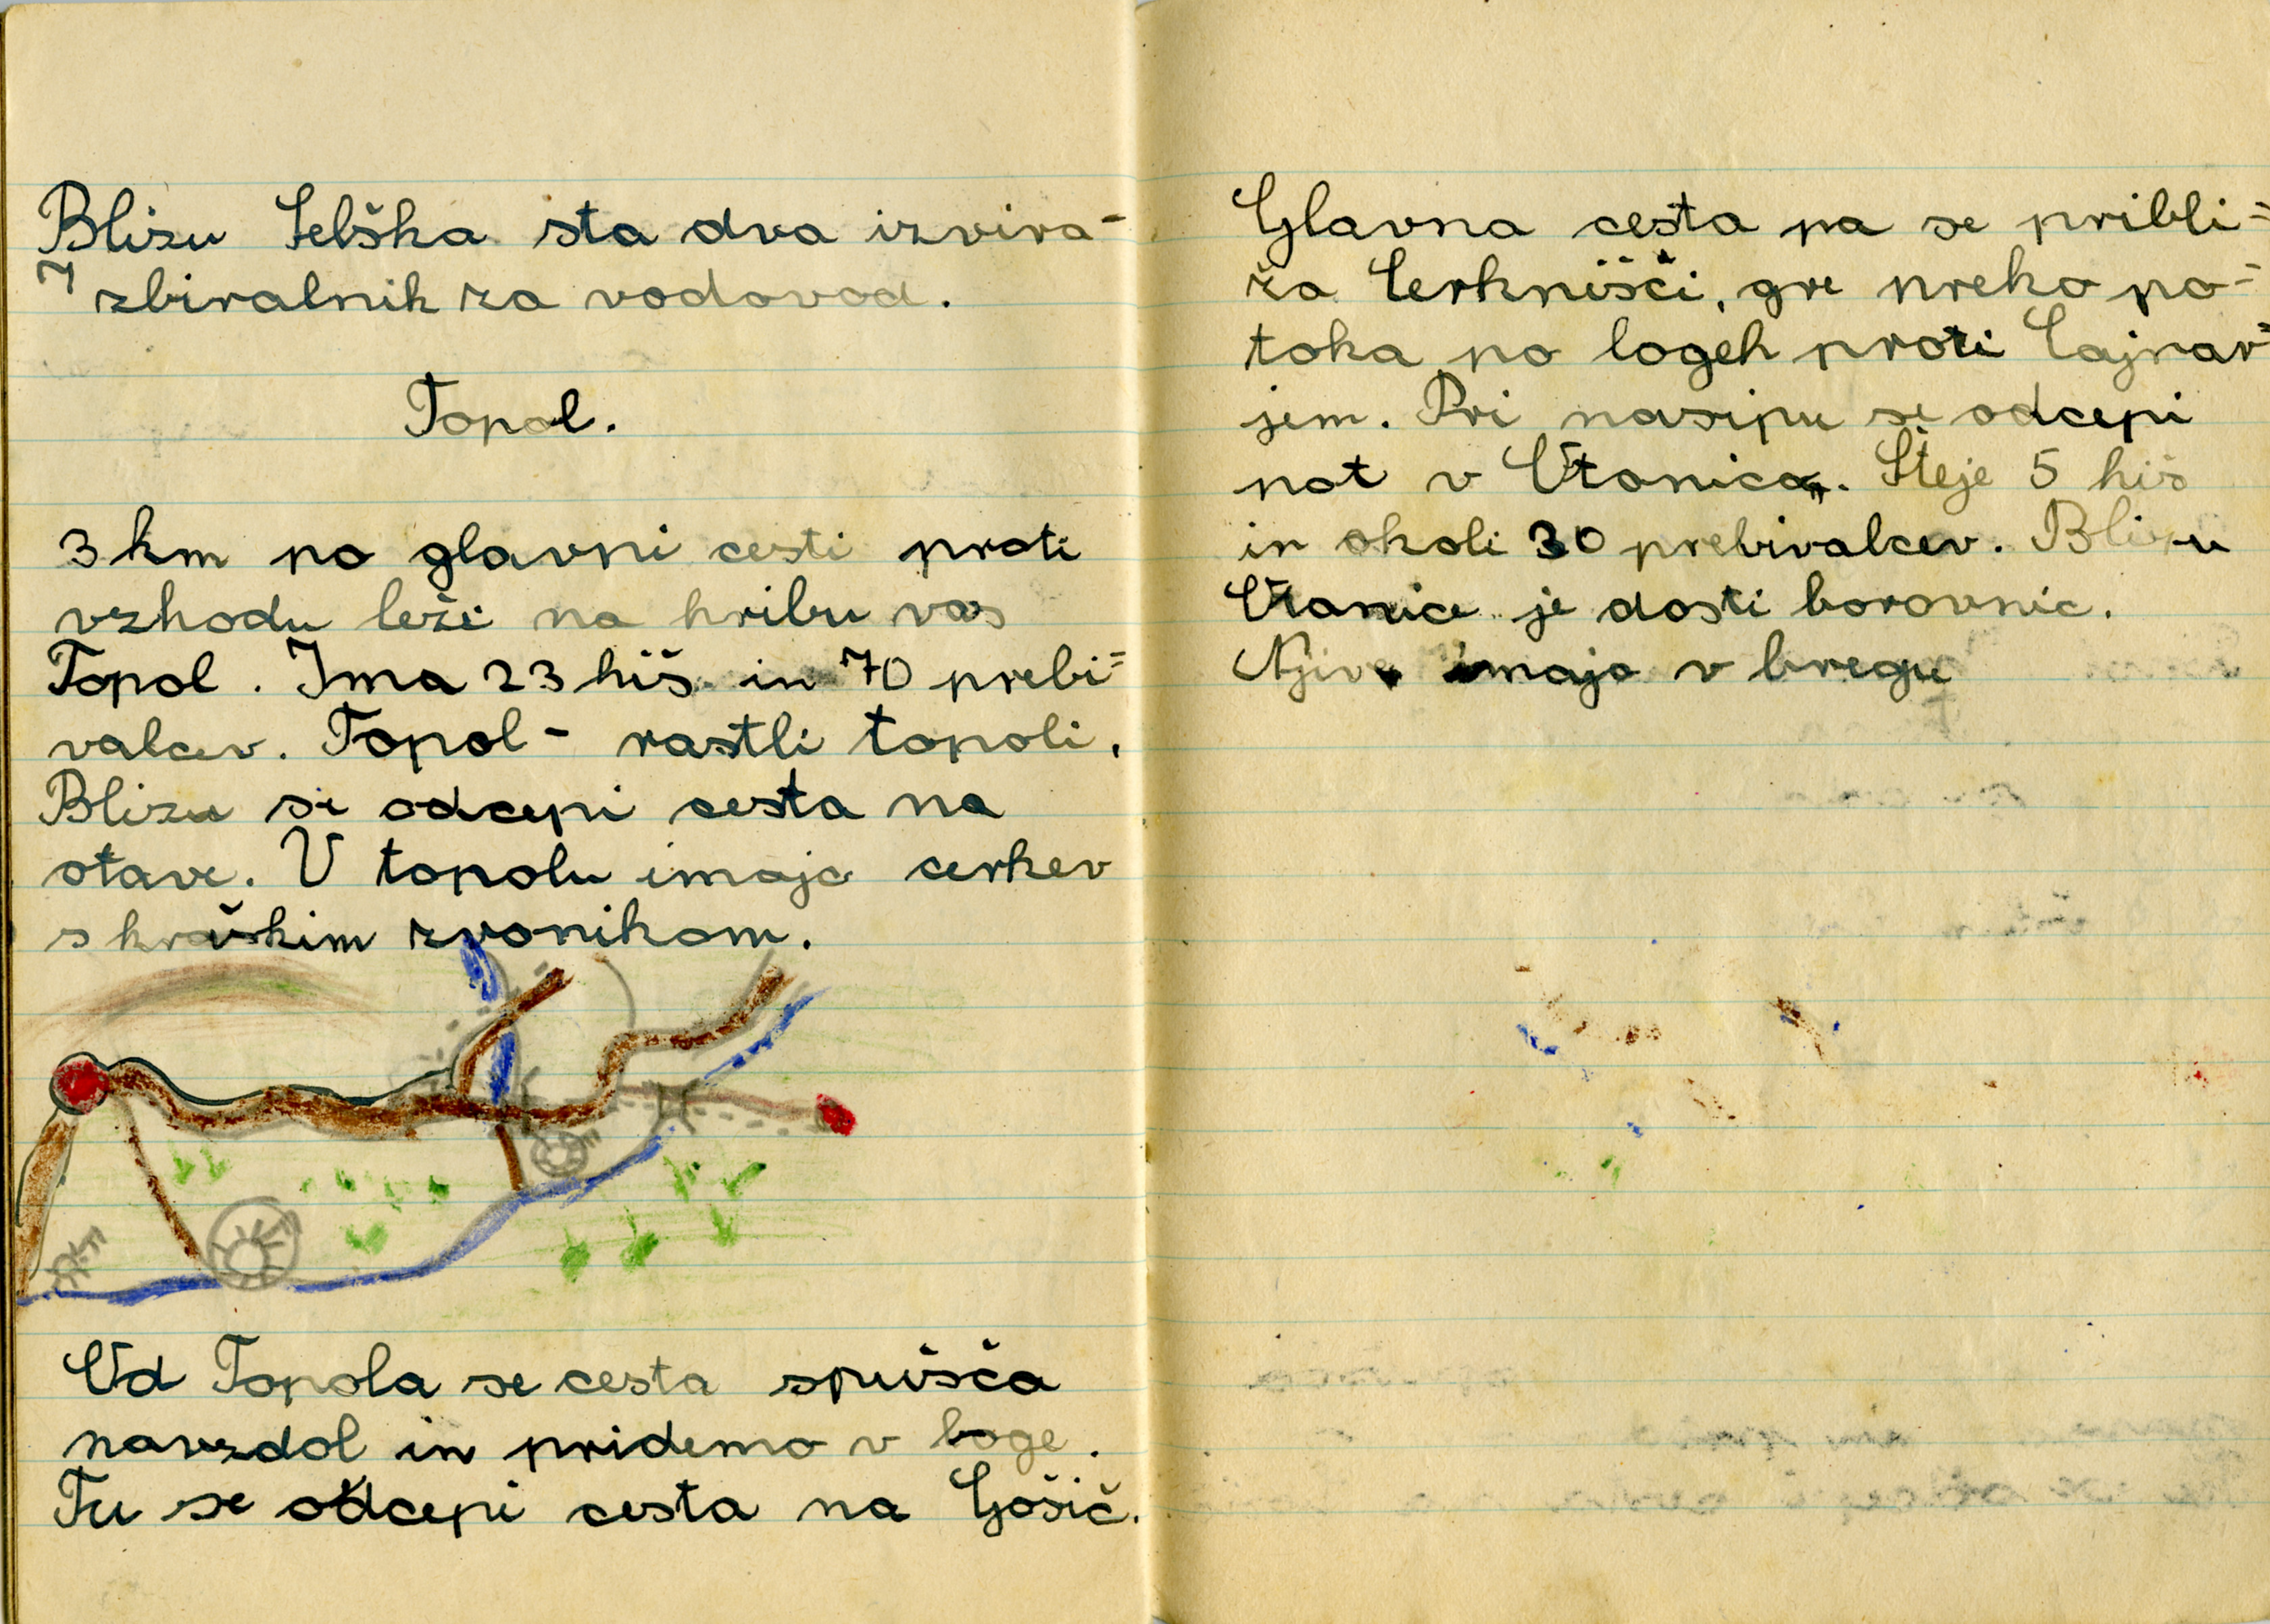 Blizu Selška sta dva izvira-
I zbiralnik za vodovod.
Topol.
3 km po glavni cesti proti
vzhodu leži na hribu vas
Topol. Ima 23 hiš in 70 prebi=
valcev. Topol - rastli topoli,
Blizu se odcepi cesta na
otave. V topolu imajo cerkev
s kraškim zvonikom.
Od Topola se cesta spušča
navzdol in pridemo v loge.
Tu se odcepi cesta na Gošič.
Glavna cesta pa se pribli=
ža Cerknišči, gre preko po=
toka po logeh proti Cajnar=
jem. Pri nasipu se odcepi
pot v Otonico. Šteje 5 hiš
in okoli 30 prebivalcev. Blizu
Otonice je dosti borovnic.
Njive imajo v bregu